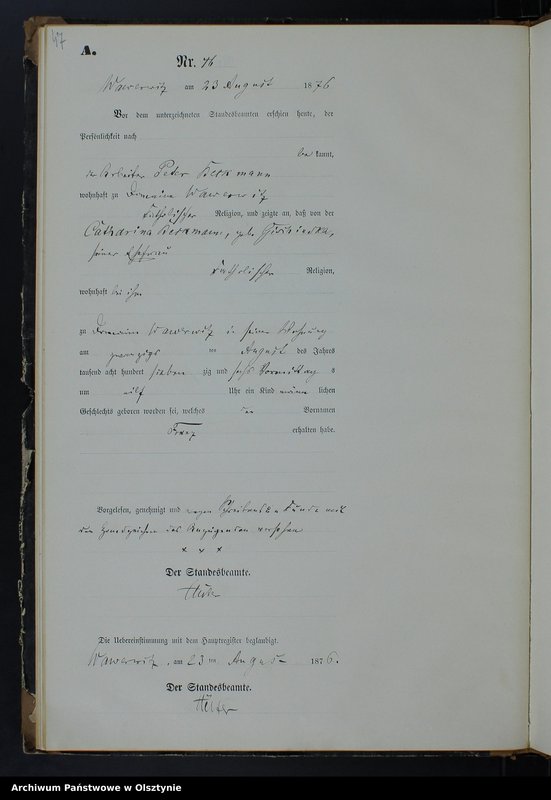 47
A.
Nr. 76
Wawerwitz am 23 August 1876
Vor dem unterzeichneten Standesbeamten erschien heute, der
Persönlichkeit nach
be kannt,
der Arbeiter Peter Beckmann
wohnhaft zu Domaine Wawerwitz
katholischer Religion, und zeigte an, daß von der
Catharina Beckmann, geb.
seiner Ehefrau
katholischer Religion,
wohnhaft bei ihm
zu Domaine Wawerwitz in seiner Wohnung
am zwanzigsten August des Jahres
tausend acht hundert sieben zig und sechs Vormittag s
um elf Uhr ein Kind männ lichen
Geschlechts geboren worden sei, welches den Vornamen
Franz erhalten habe.
Vorgelesen, genehmigt und wegen Schreibens unkunde mit
den Handzeichen des Anzeigenden versehen
x x x
Der Standesbeamte.
Die Uebereinstimmung mit dem Hauptregister beglaubigt.
Wawerwitz, am 23ten August 1876.
Der Standesbeamte.
Archiwum Państwowe w Olsztynie